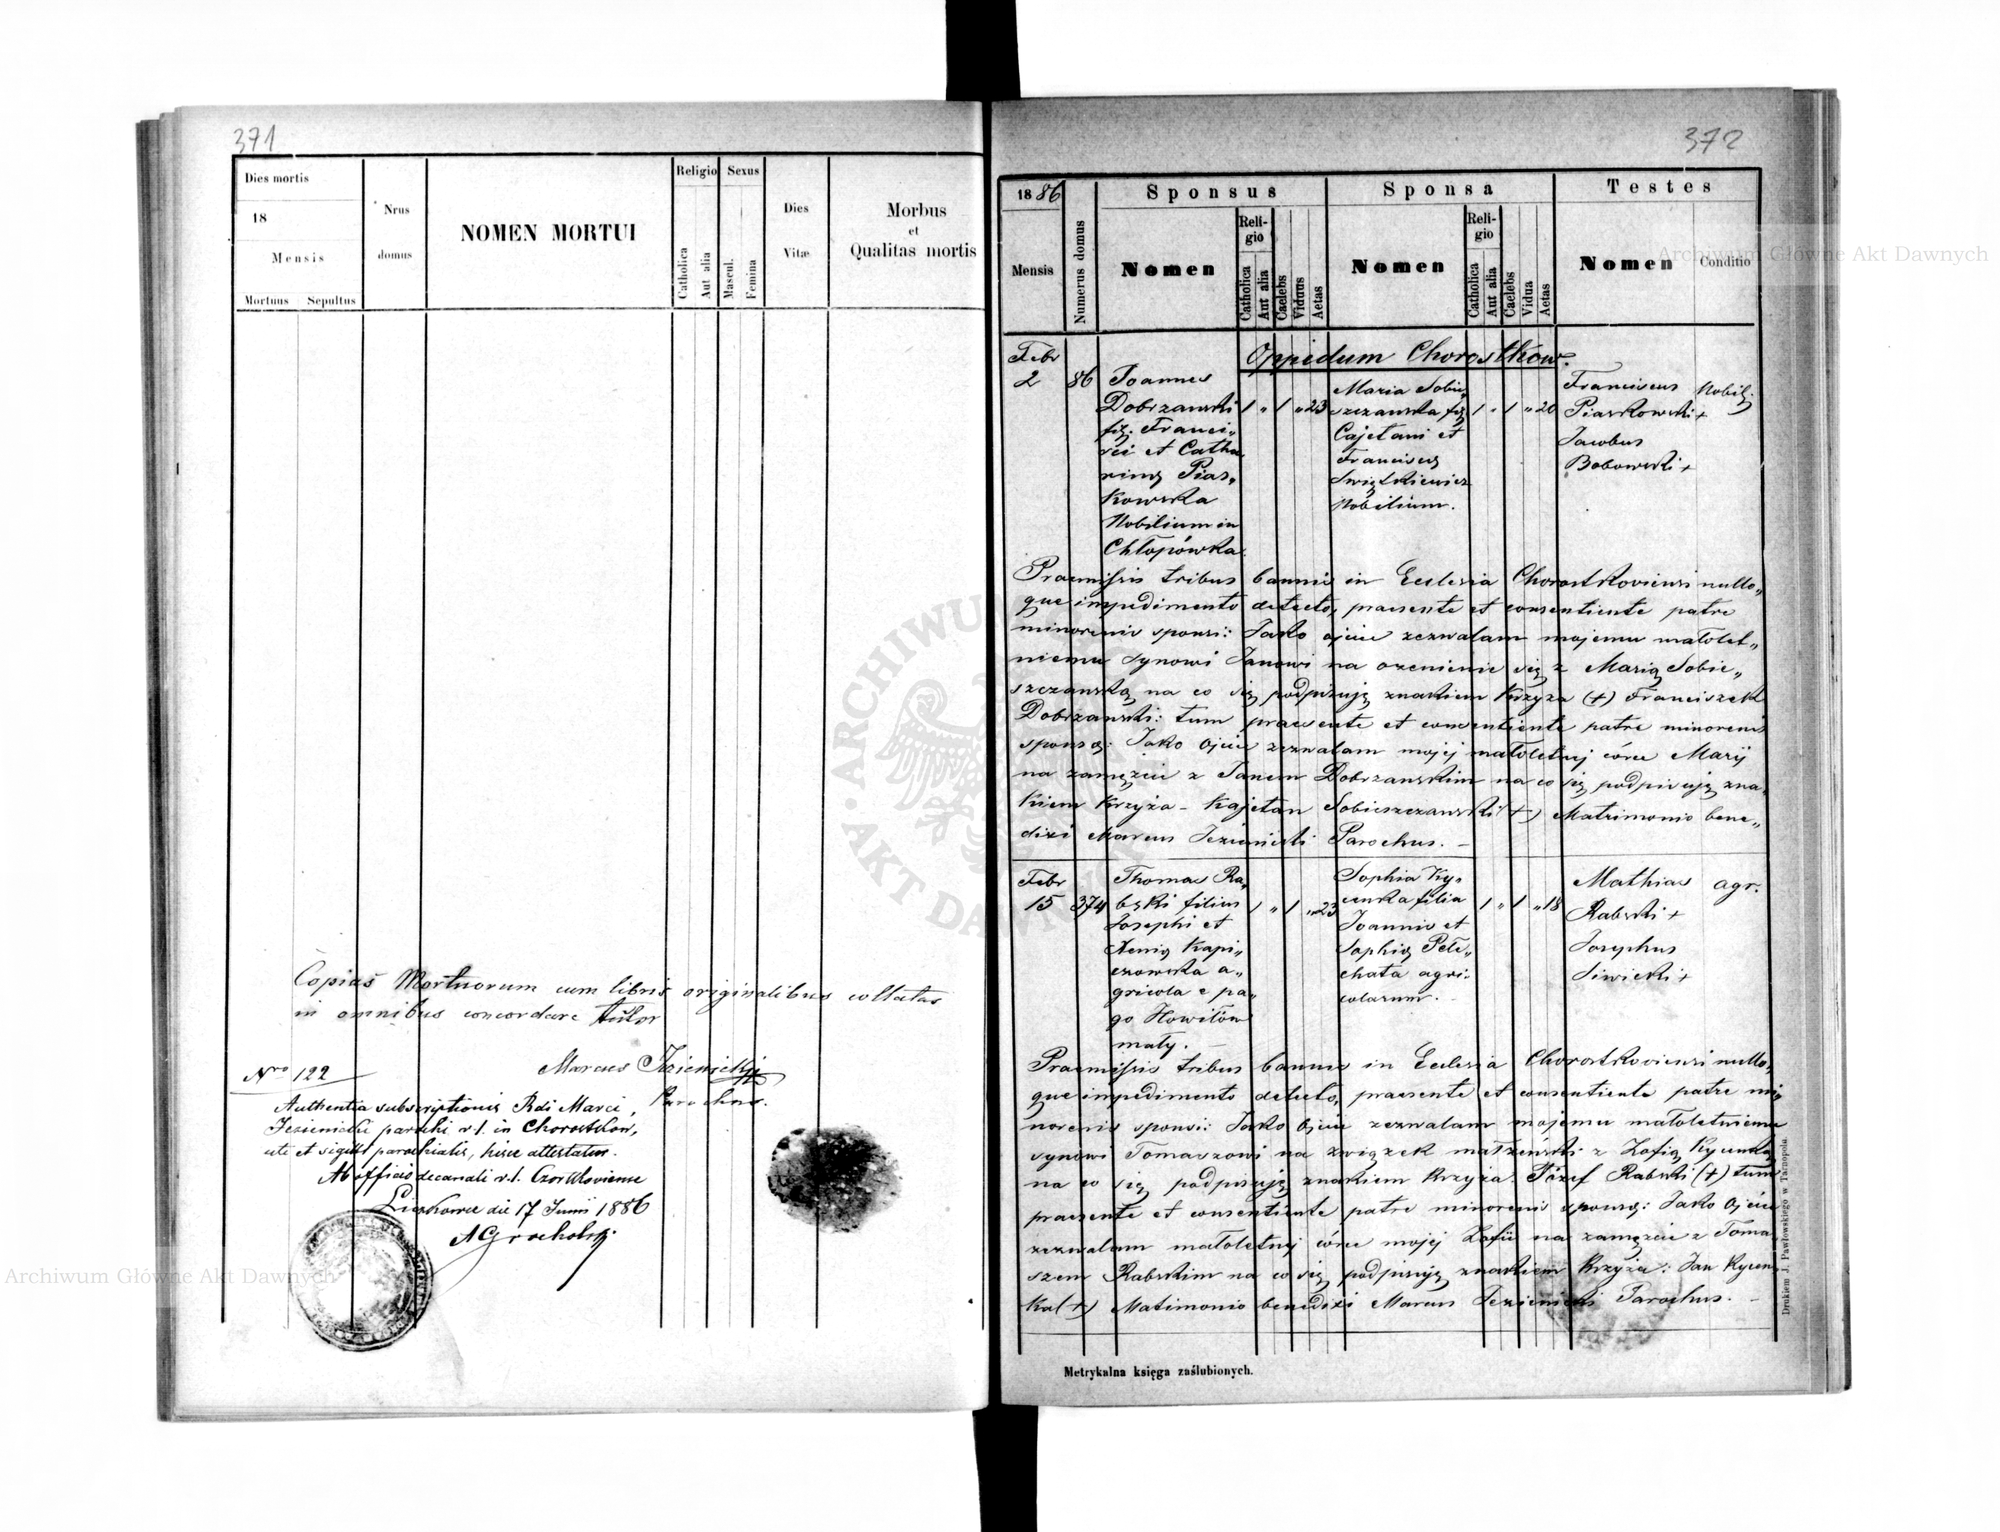 371
Dies mortis
18
Mensis
Mortuus Sepultus
Nrus
domus
NOMEN MORTUI
Religio
Catholica
Aut alia
Sexus
Mascul.
Femina
Dies
Vitæ
Morbus
et
Qualitas mortis
Copias Mortuorum cum libris originalibus collatas
in omnibus concordare testor
Marcus Jezienicki
Parochus.
Nro 122
Authentia subscriptionis Rdi Marci
Jezienicki parochi r. l. in Chorostków,
uti et sigilli parochialis, hisce attestatur.
Ab officio decanali r. l. Czortkoviensi
die 17 Junii 1886
372
1886
Mensis
Numerus domus
Sponsus
Nomen
Reli-
gio
Catholica
Aut alia
Caelebs
Viduus
Aetas
Sponsa
Nomen
Reli-
gio
Catholica
Aut alia
Caelebs
Vidua
Aetas
Testes
Nomen
Conditio
Oppidum Chorostków.
Febr
2
86
Joannes
Dobrzanski
fil. Franci„
sci et Catha
rinę Pias„
kowska
Nobilium in
Chłopówka.
1 „ 1 „ 23
Maria Sobie„
szczanska fil
Cajetani et
Franciscę
Świątkiewicz
Nobilium.
1 „ 1 „ 20
Franciscus
Piaskowski +
Jacobus
Bobowski +
Nobil.
Praemissis tribus bannis in Ecclesia Chorostkoviensi nullo„
que impedimento detecto, praesente et consentiente patre
minorenis sponsi: Jako ojciec zezwalam mojemu małolet„
niemu synowi Janowi na ożenienie się z Marią Sobie„
szczanską na co się podpisuję znakiem Krzyża (+) Franciszek
Dobrzanski: tum praesente et consentiente patre minorenis
sponsę: Jako Ojciec zezwalam mojej małoletnij córce Marij
na zamęzcie z Janem Dobrzanskim na co się podpisuję zna„
kiem Krzyża - Kajetan Sobieszczanski (+) Matrimonio bene„
dixi Marcus Jezienicki Parochus. -
Febr
15
374
Thomas Ra„
bski filius
Josephi et
Xenię Kapi„
czowska a„
gricola e pa„
go Howiłów
mały.
1 „ 1 „ 23
Sophia Ky„
cunka filia
Joannis et
Sophię Pełe„
chata agri„
colarum.
1 „ 1 „ 18
Mathias
Rabski +
Josephus
Siwicki +
agr.
Praemissis tribus bannis in Ecclesia Chorostkoviensi nullo„
que impedimento detecto, praesente et consentiente patre mi„
norenis sponsi: Jako Ojciec zezwalam mojemu małoletniemu
synowi Tomaszowi na związek małżeński z Zofią
na co się podpisuję znakiem Krzyża. Józef Rabski (+) tum
praesente et consentiente patre minorenis sponsę: Jako Ojciec
zezwalam małoletnij córce mojej Zofii na zamęzcie z Toma
szem Rabskim na co się podpisuję znakiem Krzyża: Jan
(+) Matimonio benedixi Marcus Jezienicki Parochus. -
Metrykalna księga zaślubionych.
Drukiem J. Pawłowskiego w Tarnopolu.
Archiwum Główne Akt Dawnych
Archiwum Główne Akt Dawnych
ARCHIWUM
AKT DAWNYCH